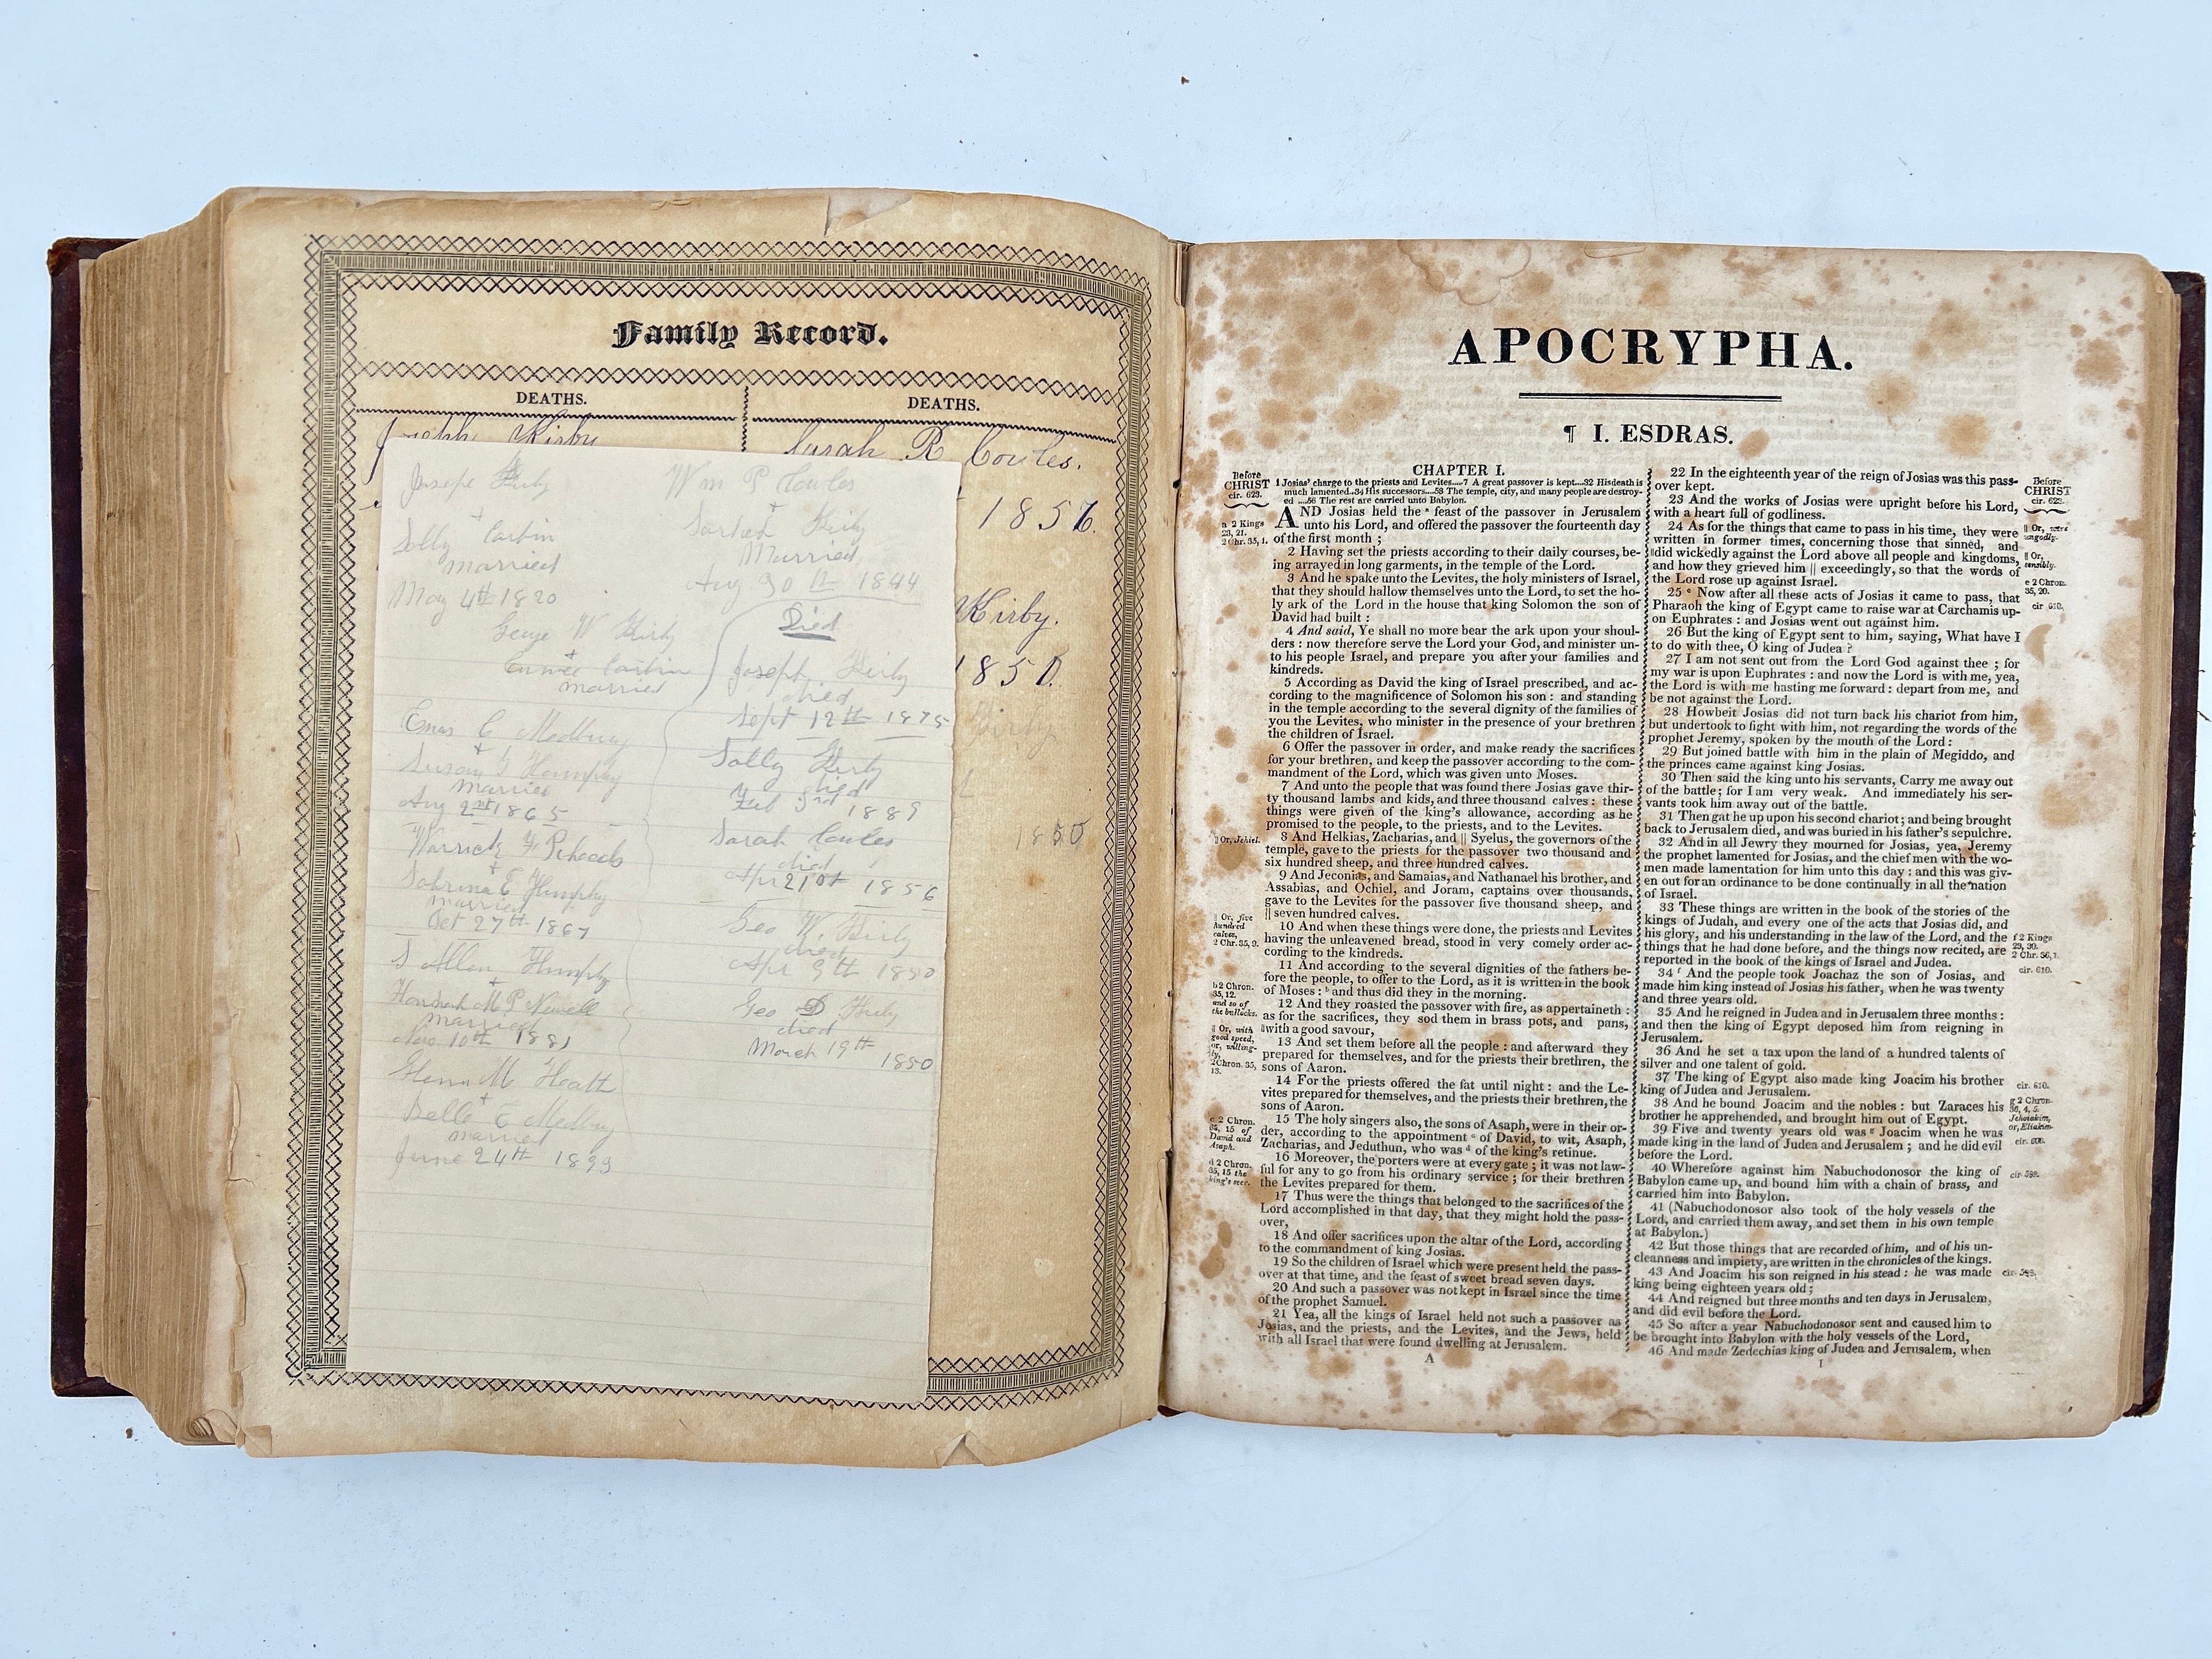 Family Record.
DEATHS.
DEATHS.
Joseph Kirby
Sarah R Cowles.
1856.
Kirby.
1850.
1850
Joseph Kirby
+
Solly Corbin
married
May 4th 1820
George W Kirby
+
Corbin
married
C Medbury
+
Susan G Humphry
married
Aug 2nd 1865
Warrick
+
Sabrina E Humphry
married
Oct 27th 1867
S Allen Humphry
+
Hannah M P Newell
married
Nov 10th 1881
Glenn M Heath
+
Belle E Medbury
married
June 24th 1893
Wm P Cowles
+
Kirby
Married
Aug 30th 1844
Died
Joseph Kirby
died
Sept 12th 1875
Solly Kirby
died
Feb 3rd 1889
Sarah Cowles
died
Apr 21st 1856
Geo W. Kirby
died
Apr 9th 1850
Geo D Kirby
died
March 19th
1850
APOCRYPHA.
¶ I. ESDRAS.
Before
CHRIST
cir. 623.
a 2 Kings
23, 21.
2 Chr. 35, 1.
|| Or, Jehiel.
|| Or, five
hundred
calves,
2 Chr. 35, 9.
b 2 Chron.
35, 12.
and so of
the bullocks.
|| Or, with
good speed,
or, willing-
ly,
2 Chron. 35,
13.
c 2 Chron.
35, 15 of
David and
Asaph.
d 2 Chron.
35, 15 the
king's seer.
CHAPTER I.
1 Josias' charge to the priests and Levites....7 A great passover is kept....32 His death is
much lamented..34 His successors....53 The temple, city, and many people are destroy-
ed ....56 The rest are carried unto Babylon.
AND Josias held the a feast of the passover in Jerusalem
unto his Lord, and offered the passover the fourteenth day
of the first month ;
2 Having set the priests according to their daily courses, be-
ing arrayed in long garments, in the temple of the Lord.
3 And he spake unto the Levites, the holy ministers of Israel,
that they should hallow themselves unto the Lord, to set the ho-
ly ark of the Lord in the house that king Solomon the son of
David had built :
4 And said, Ye shall no more bear the ark upon your shoul-
ders : now therefore serve the Lord your God, and minister un-
to his people Israel, and prepare you after your families and
kindreds.
5 According as David the king of Israel prescribed, and ac-
cording to the magnificence of Solomon his son : and standing
in the temple according to the several dignity of the families of
you the Levites, who minister in the presence of your brethren
the children of Israel.
6 Offer the passover in order, and make ready the sacrifices
for your brethren, and keep the passover according to the com-
mandment of the Lord, which was given unto Moses.
7 And unto the people that was found there Josias gave thir-
ty thousand lambs and kids, and three thousand calves : these
things were given of the king's allowance, according as he
promised to the people, to the priests, and to the Levites.
8 And Helkias, Zacharias, and || Syelus, the governors of the
temple, gave to the priests for the passover two thousand and
six hundred sheep, and three hundred calves.
9 And Jeconias, and Samaias, and Nathanael his brother, and
Assabias, and Ochiel, and Joram, captains over thousands,
gave to the Levites for the passover five thousand sheep, and
|| seven hundred calves.
10 And when these things were done, the priests and Levites
having the unleavened bread, stood in very comely order ac-
cording to the kindreds.
11 And according to the several dignities of the fathers be-
fore the people, to offer to the Lord, as it is written in the book
of Moses : b and thus did they in the morning.
12 And they roasted the passover with fire, as appertaineth :
as for the sacrifices, they sod them in brass pots, and pans,
|| with a good savour,
13 And set them before all the people : and afterward they
prepared for themselves, and for the priests their brethren, the
sons of Aaron.
14 For the priests offered the fat until night : and the Le-
vites prepared for themselves, and the priests their brethren, the
sons of Aaron.
15 The holy singers also, the sons of Asaph, were in their or-
der, according to the appointment c of David, to wit, Asaph,
Zacharias, and Jeduthun, who was d of the king's retinue.
16 Moreover, the porters were at every gate ; it was not law-
ful for any to go from his ordinary service ; for their brethren
the Levites prepared for them.
17 Thus were the things that belonged to the sacrifices of the
Lord accomplished in that day, that they might hold the pass-
over,
18 And offer sacrifices upon the altar of the Lord, according
to the commandment of king Josias.
19 So the children of Israel which were present held the pass-
over at that time, and the feast of sweet bread seven days.
20 And such a passover was not kept in Israel since the time
of the prophet Samuel.
21 Yea, all the kings of Israel held not such a passover as
Josias, and the priests, and the Levites, and the Jews, held
with all Israel that were found dwelling at Jerusalem.
A
22 In the eighteenth year of the reign of Josias was this pass-
over kept.
23 And the works of Josias were upright before his Lord,
with a heart full of godliness.
24 As for the things that came to pass in his time, they were
written in former times, concerning those that sinned, and
|| did wickedly against the Lord above all people and kingdoms,
and how they grieved him || exceedingly, so that the words of
the Lord rose up against Israel.
25 e Now after all these acts of Josias it came to pass, that
Pharaoh the king of Egypt came to raise war at Carchamis up-
on Euphrates : and Josias went out against him.
26 But the king of Egypt sent to him, saying, What have I
to do with thee, O king of Judea ?
27 I am not sent out from the Lord God against thee ; for
my war is upon Euphrates : and now the Lord is with me, yea,
the Lord is with me hasting me forward : depart from me, and
be not against the Lord.
28 Howbeit Josias did not turn back his chariot from him,
but undertook to fight with him, not regarding the words of the
prophet Jeremy, spoken by the mouth of the Lord :
29 But joined battle with him in the plain of Megiddo, and
the princes came against king Josias.
30 Then said the king unto his servants, Carry me away out
of the battle ; for I am very weak. And immediately his ser-
vants took him away out of the battle.
31 Then gat he up upon his second chariot ; and being brought
back to Jerusalem died, and was buried in his father's sepulchre.
32 And in all Jewry they mourned for Josias, yea, Jeremy
the prophet lamented for Josias, and the chief men with the wo-
men made lamentation for him unto this day : and this was giv-
en out for an ordinance to be done continually in all the nation
of Israel.
33 These things are written in the book of the stories of the
kings of Judah, and every one of the acts that Josias did, and
his glory, and his understanding in the law of the Lord, and the
things that he had done before, and the things now recited, are
reported in the book of the kings of Israel and Judea.
34 f And the people took Joachaz the son of Josias, and
made him king instead of Josias his father, when he was twenty
and three years old.
35 And he reigned in Judea and in Jerusalem three months :
and then the king of Egypt deposed him from reigning in
Jerusalem.
36 And he set a tax upon the land of a hundred talents of
silver and one talent of gold.
37 The king of Egypt also made king Joacim his brother
king of Judea and Jerusalem.
38 And he bound Joacim and the nobles : but Zaraces his
brother he apprehended, and brought him out of Egypt.
39 Five and twenty years old was g Joacim when he was
made king in the land of Judea and Jerusalem ; and he did evil
before the Lord.
40 Wherefore against him Nabuchodonosor the king of
Babylon came up, and bound him with a chain of brass, and
carried him into Babylon.
41 (Nabuchodonosor also took of the holy vessels of the
Lord, and carried them away, and set them in his own temple
at Babylon.)
42 But those things that are recorded of him, and of his un-
cleanness and impiety, are written in the chronicles of the kings.
43 And Joacim his son reigned in his stead : he was made
king being eighteen years old ;
44 And reigned but three months and ten days in Jerusalem,
and did evil before the Lord.
45 So after a year Nabuchodonosor sent and caused him to
be brought into Babylon with the holy vessels of the Lord,
46 And made Zedechias king of Judea and Jerusalem, when
1
Before
CHRIST
cir. 623.
|| Or, were
ungodly.
|| Or,
sensibly.
e 2 Chron.
35, 20.
cir 610.
f 2 Kings
23, 30.
2 Chr. 36, 1.
cir. 610.
cir. 610.
g 2 Chron.
36, 4, 5.
Jehoiakim,
or, Eliakim.
cir. 606.
cir. 599.
cir. 599.